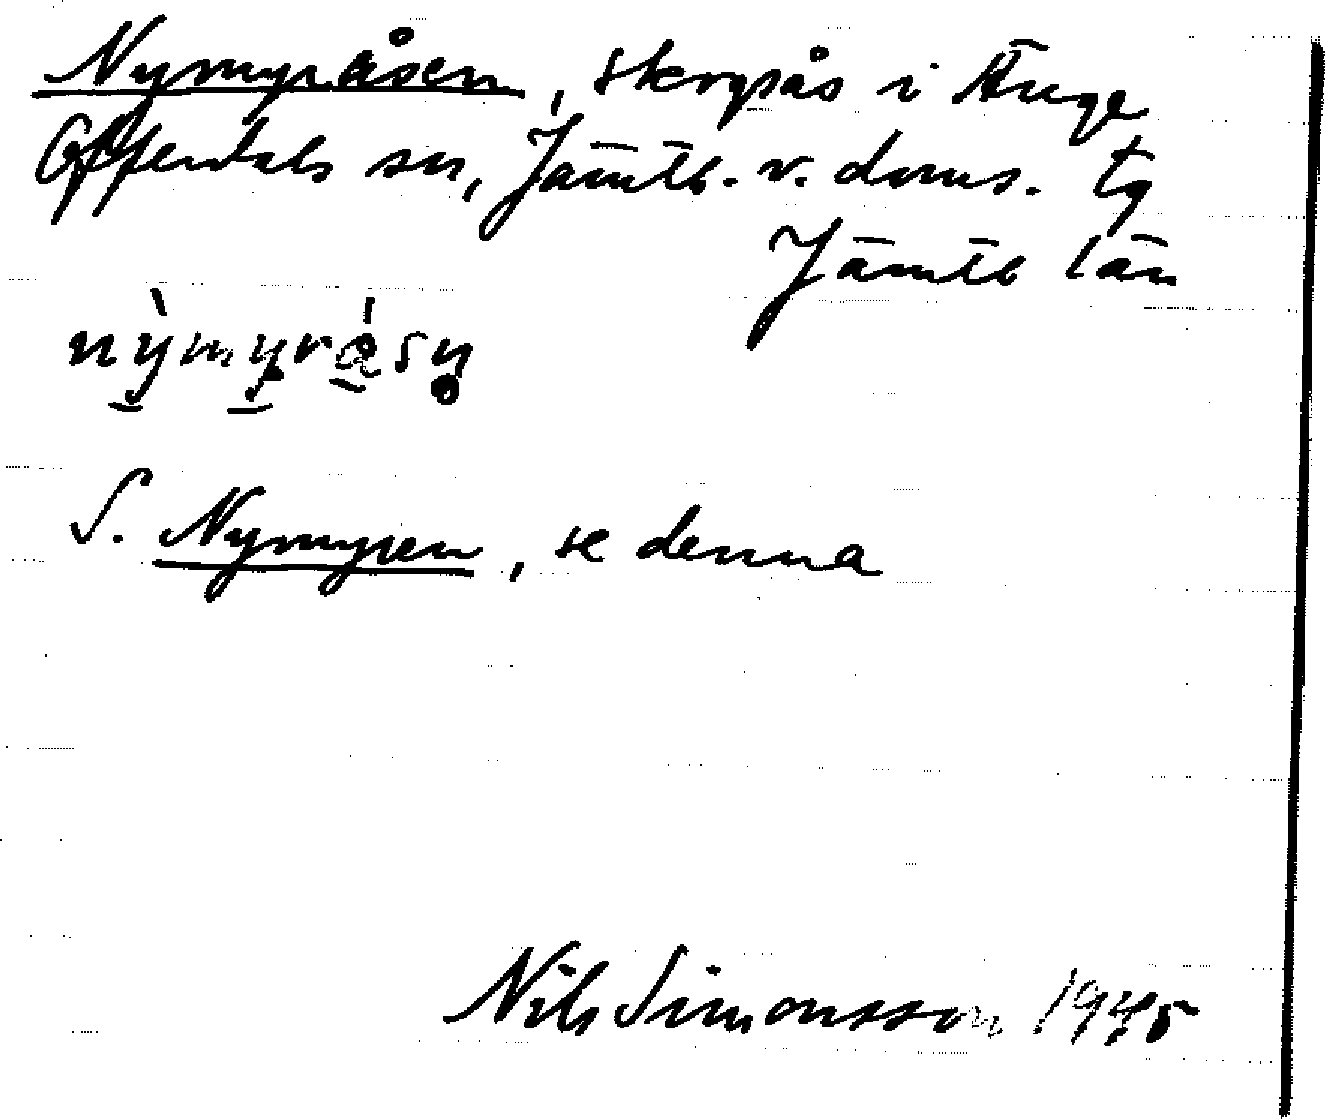 Nymyråsen, skogsås i Änge
Offerdals sn, Jämtl. v. doms. tg
Jämtl län
nỳmyrásn̥
S. Nymyren, se denna
Nils Simonsson 1945